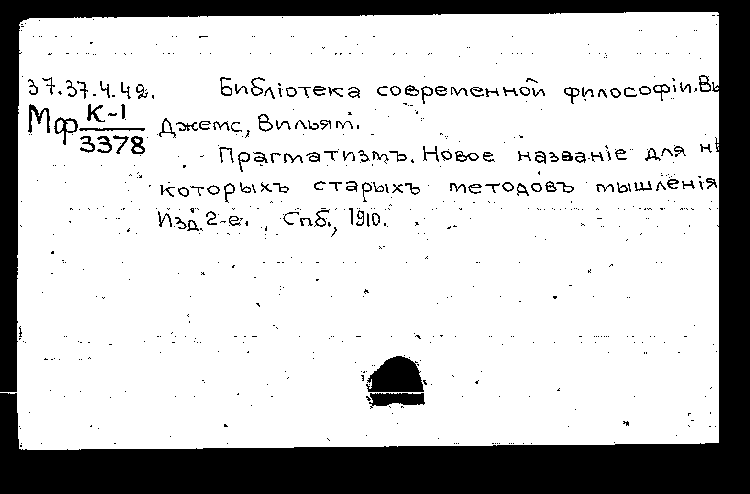 37.37.4.42. Библіотека современной философіи. Вы
Мф К-1 Джемс, Вильям.
3378
Прагматизмъ. Новое названіе для нѣ
которыхъ старыхъ методовъ мышленія
Изд. 2-е. , Спб., 1910.